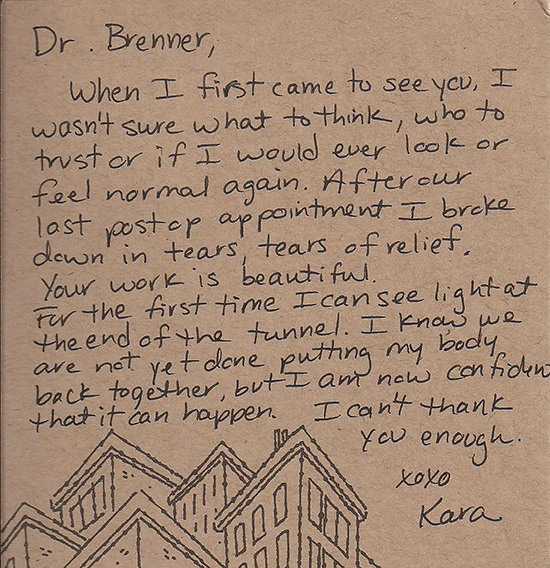 Dr. Brenner,
When I first came to see you, I
wasn't sure what to think, who to
trust or if I would ever look or
feel normal again. After our
last post op appointment I broke
down in tears, tears of relief.
Your work is beautiful.
For the first time I can see light at
the end of the tunnel. I know we
are not yet done putting my body
back together, but I am now confiden
that it can happen. I can't thank
you enough.
xoxo
Kara